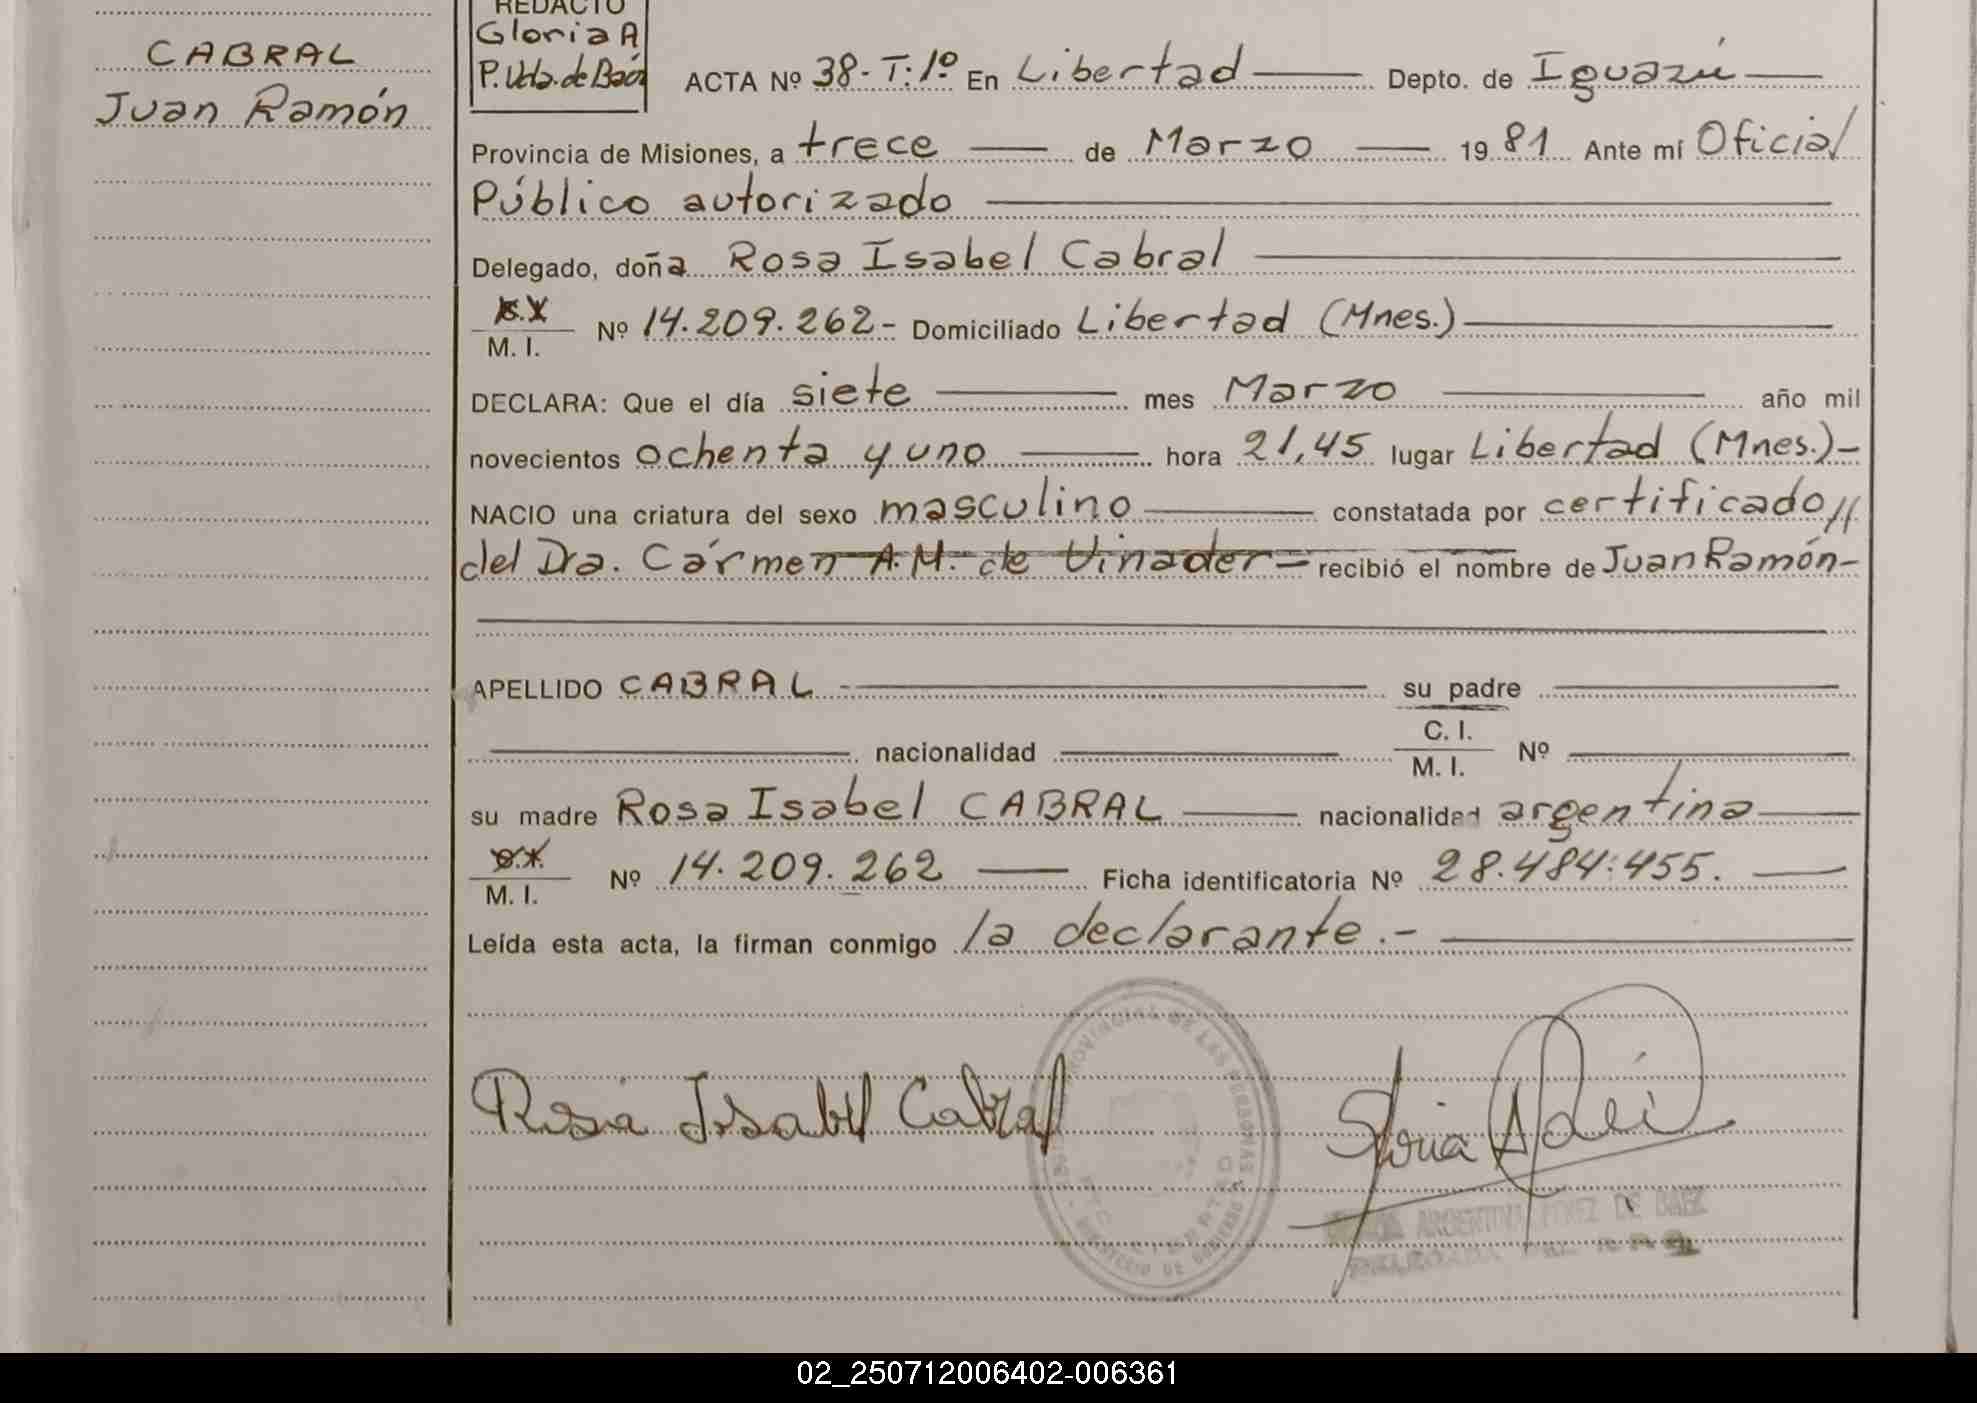 REDACTO
Gloria A
P. Vda. de Báez
CABRAL
Juan Ramón
ACTA Nº 38-T:1º En Libertad Depto. de Iguazú
Provincia de Misiones, a trece de Marzo 1981 Ante mí Oficial
Público autorizado
Delegado, doña Rosa Isabel Cabral
M. I. Nº 14.209.262- Domiciliado Libertad (Mnes.)
DECLARA: Que el día siete mes Marzo año mil
novecientos ochenta y uno hora 21,45 lugar Libertad (Mnes.)-
NACIO una criatura del sexo masculino constatada por certificado//
del Dra. Cármen A.M. de Vinader- recibió el nombre de Juan Ramón-
APELLIDO CABRAL - su padre
nacionalidad C. I. M. I. Nº
su madre Rosa Isabel CABRAL nacionalidad argentina
M. I. Nº 14.209.262 Ficha identificatoria Nº 28.484.455.
Leída esta acta, la firman conmigo la declarante.-
Rosa Isabel Cabral
Gloria A
PROVINCIAL DE LAS PERSONAS
MINISTERIO DE GOBIERNO
ARGENTINA PEREZ DE BAEZ
02_250712006402-006361